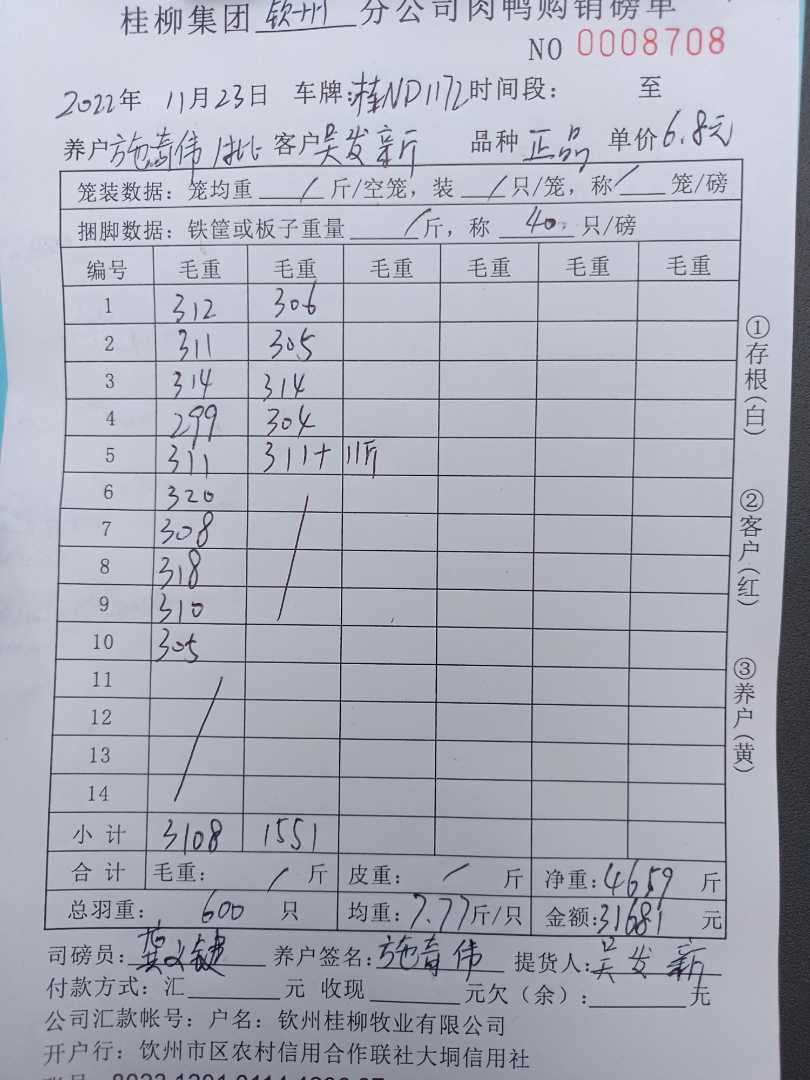 桂柳集团 钦州 分公司肉鸭购销磅单
NO 0008708
2022年 11月23日 车牌:桂ND1172 时间段: 至
养户 施富伟 1批 客户 吴发新 品种 正品 单价 6.8元
笼装数据: 笼均重 / 斤/空笼, 装 / 只/笼, 称 / 笼/磅
捆脚数据: 铁筐或板子重量 / 斤, 称 40 只/磅
编号 毛重 毛重 毛重 毛重 毛重 毛重
1 312 306
2 311 305
3 314 314
4 299 304
5 311 311+11斤
6 320
7 308
8 318
9 310
10 305
11
12
13
14
小计 3108 1551
合计 毛重: / 斤 皮重: / 斤 净重: 4659 斤
总羽重: 600 只 均重: 7.77 斤/只 金额: 31681 元
司磅员: 养户签名: 施富伟 提货人: 吴发新
付款方式: 汇 元 收现 元欠(余): 元
公司汇款帐号: 户名: 钦州桂柳牧业有限公司
开户行: 钦州市区农村信用合作联社大垌信用社
①存根(白)
②客户(红)
③养户(黄)